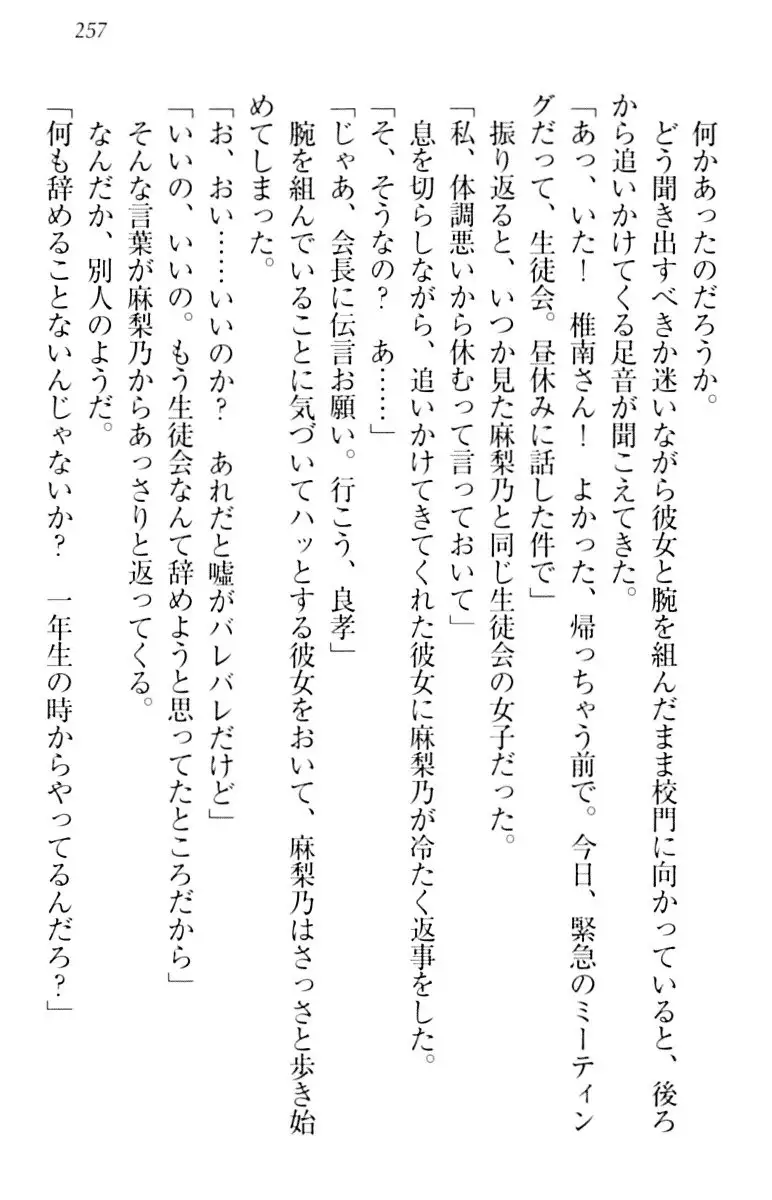 257
何かあったのだろうか。
どう聞き出すべきか迷いながら彼女と腕を組んだまま校門に向かっていると、後ろ
から追いかけてくる足音が聞こえてきた。
「あっ、いた！　椎南さん！　よかった、帰っちゃう前で。今日、緊急のミーティン
グだって、生徒会。昼休みに話した件で」
振り返ると、いつか見た麻梨乃と同じ生徒会の女子だった。
「私、体調悪いから休むって言っておいて」
息を切らしながら、追いかけてきてくれた彼女に麻梨乃が冷たく返事をした。
「そ、そうなの？　あ……」
「じゃあ、会長に伝言お願い。行こう、良孝」
腕を組んでいることに気づいてハッとする彼女をおいて、麻梨乃はさっさと歩き始
めてしまった。
「お、おい……いいのか？　あれだと嘘がバレバレだけど」
「いいの、いいの。もう生徒会なんて辞めようと思ってたところだから」
そんな言葉が麻梨乃からあっさりと返ってくる。
なんだか、別人のようだ。
「何も辞めることないんじゃないか？　一年生の時からやってるんだろ？」